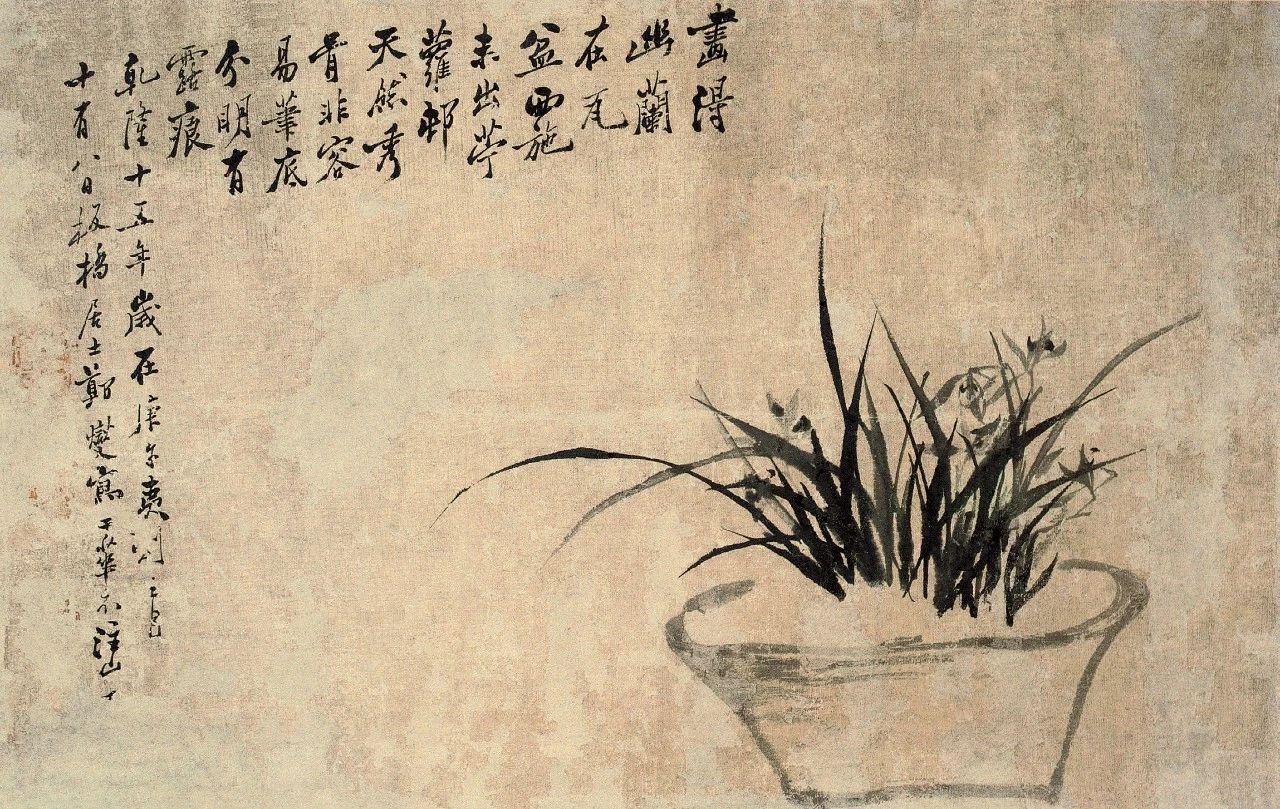 畫得
幽蘭
在瓦
盆西施
未出苧
蘿邨
天然秀
骨非容
易筆底
分明有
露痕
乾隆十五年歲在庚午夷則之
十有八日板橋居士鄭燮寫